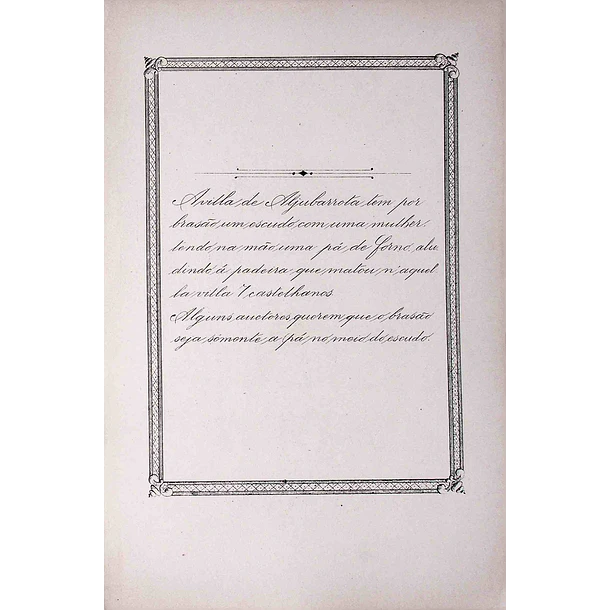 A villa de Aljubarrota tem por
brasão um escudo com uma mulher
tendo na mão uma pá de forno, allu
dindo á padeira que matou n'aquel
la villa 7 castelhanos.
Alguns auctores querem que o brasão
seja sómente a pá no meio do escudo.